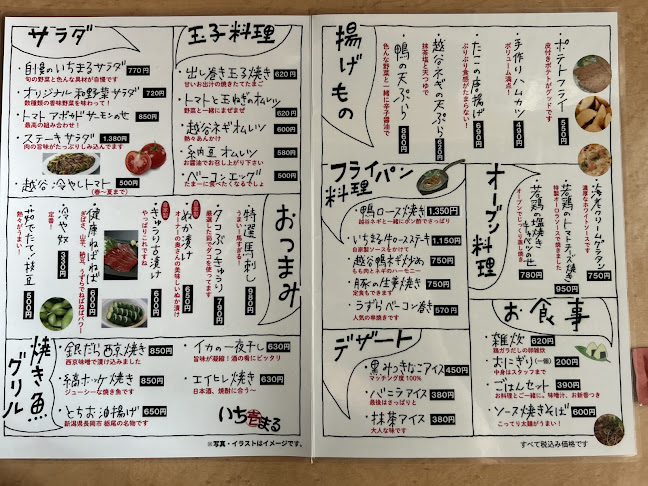 サラダ
・自慢のいちまるサラダ 770円
旬の野菜と色んな具材が自慢です
・オリジナル和野菜サラダ 720円
数種類の香味野菜を味わって!
・トマトアボカドサーモンのせ 850円
最高の組み合わせ!
・ステーキサラダ 1,380円
肉の旨味がたっぷりしみこんでます
・越谷 冷やしトマト 500円
(春〜夏まで)
玉子料理
・出し巻き玉子焼き 620円
甘いお出汁の焼きたてたまご
・トマトと玉ねぎのオムレツ 620円
野菜と一緒にまぜまぜ
・越谷ネギオムレツ 600円
熱々あんかけ
・納豆オムレツ 580円
お醤油でお召し上がり下さい
・ベーコンエッグ 500円
たまーに食べたくなるでしょ
おつまみ
・特選馬刺し 980円
うまい!馬すぎる!
・タコぶつきゅうり 790円
厳選した茹でダコを使ってます
・ぬか漬け 650円
オーナーの奥さんの美味しいぬか漬け
・きゅうり一本漬け 500円
やっぱりこれですね
・健康ねばねば 600円
めかぶ、山芋、納豆、うずらでねばねばパワー!
・冷や奴 330円
定番!
・茹でたて!枝豆 500円
熱々がうまい!
焼き魚
グリル
・銀だら西京焼き 850円
西京味噌で漬け込みました
・縞ホッケ焼き 850円
ジューシーな焼き魚です
・とちお油揚げ 650円
新潟県長岡市 栃尾の名物です
・イカの一夜干し 630円
旨味が凝縮!酒の肴にピッタリ
・エイヒレ焼き 630円
日本酒、焼酎に合う〜
いち壱まる
※写真・イラストはイメージです。
揚げもの
・ポテトフライ 550円
皮付きポテトがグッドです
・手作りハムカツ 490円
ボリューム満点!
・たこの唐揚げ 690円
ぷりぷり食感がたまらない!
・越谷ネギの天ぷら 620円
抹茶塩と天つゆで
・鴨の天ぷら 860円
色んな野菜と一緒に辛子醤油で
フライパン
料理
・鴨ロース焼き 1,350円
越谷ネギと一緒にポン酢でさっぱり
・いちまる牛ロースステーキ 1,150円
自家製ソースをかけて
・越谷鴨ネギ炒め 750円
もも肉とネギのハーモニー
・豚の生姜焼き 750円
定食もできます
・うずらベーコン巻き 570円
人気の串焼きです
オーブン
料理
・海老クリームグラタン 750円
濃厚なホワイトソースで焼きました
・若鶏のトマトチーズ焼き 950円
特製オーロラソースで焼きました
・若鶏の塩焼き 780円
オーブンでじっくり蒸し焼き
デザート
・黒みつきなこアイス 450円
マッチング度100%
・バニラアイス 380円
最後はさっぱりと
・抹茶アイス 380円
大人な味です
お食事
・雑炊 620円
鶏ガラだしの卵雑炊
・おにぎり(一個) 200円
中身はスタッフまで
・ごはんセット 390円
お料理とご一緒に。味噌汁、お新香つき
・ソース焼きそば 600円
こってり太麺がうまい!
すべて税込み価格です